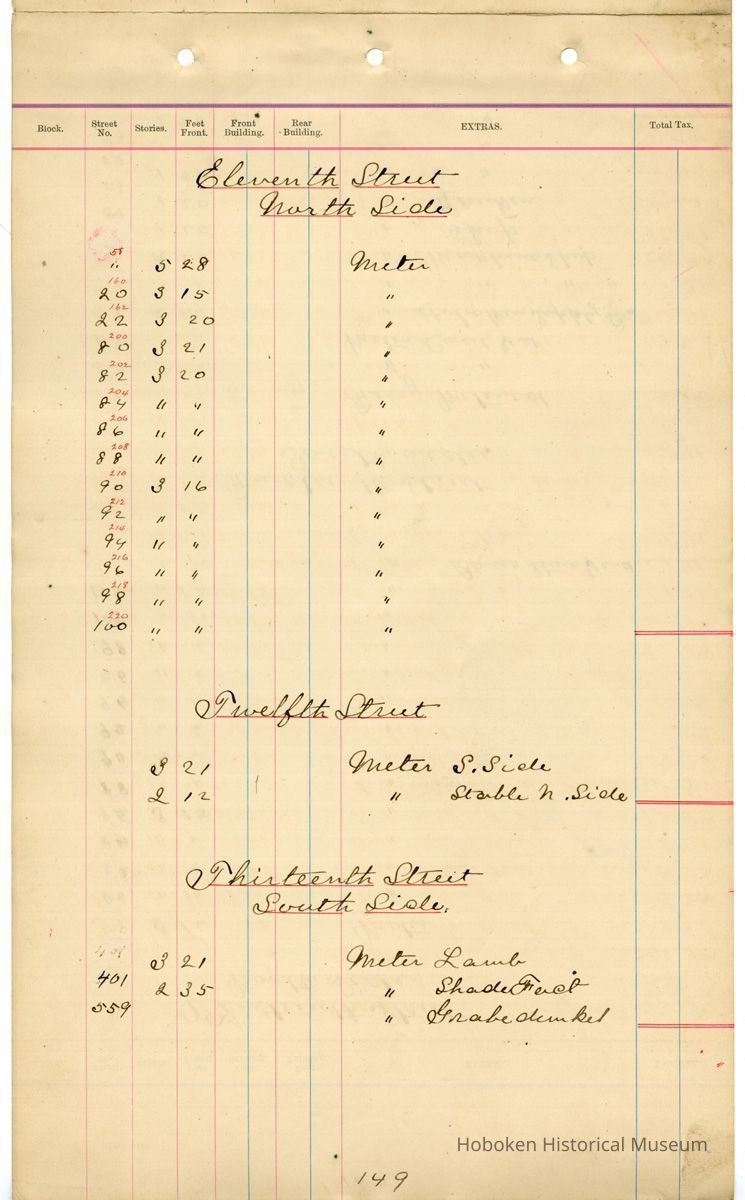 Block. Street No. Stories. Feet Front. Front Building. Rear Building. EXTRAS. Total Tax.
Eleventh Street
North Side
58
" 5 28 Meter
160
20 3 15 "
162
22 3 20 "
200
80 3 21 "
202
82 3 20 "
204
84 " " "
206
86 " " "
208
88 " " "
210
90 3 16 "
212
92 " " "
214
94 " " "
216
96 " " "
218
98 " " "
220
100 " " "
Twelfth Street
3 21 Meter S. Side
2 12 " Stable N. Side
Thirteenth Street
South Side.
401 3 21 Meter Lamb
401 2 35 " Shade Fact
559 " Grabedunkel
Hoboken Historical Museum
149